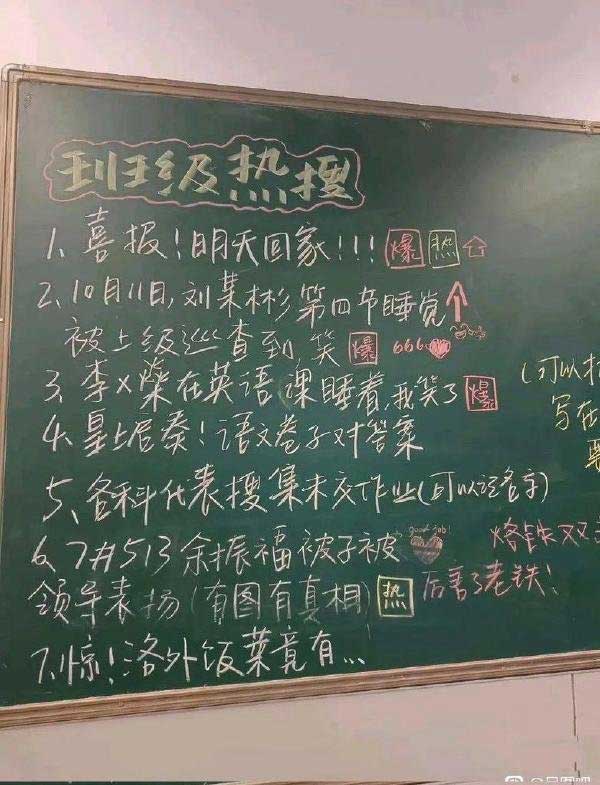 班级热搜
1、喜报！明天回家！！！ 爆 热
2、10月11日，刘某彬第四节睡觉
被上级巡查到，笑 爆 666
3、李X燊在英语课睡着，我笑了 爆
4、皇上启奏！语文卷子对答案
(可以
写在
5、各科代表搜集未交作业(可以记名字)
6、7#513 余振福被子被 good job!
领导表扬(有图有真相) 热
烙铁双
厉害了老铁！
7、惊！洛外饭菜竟有...